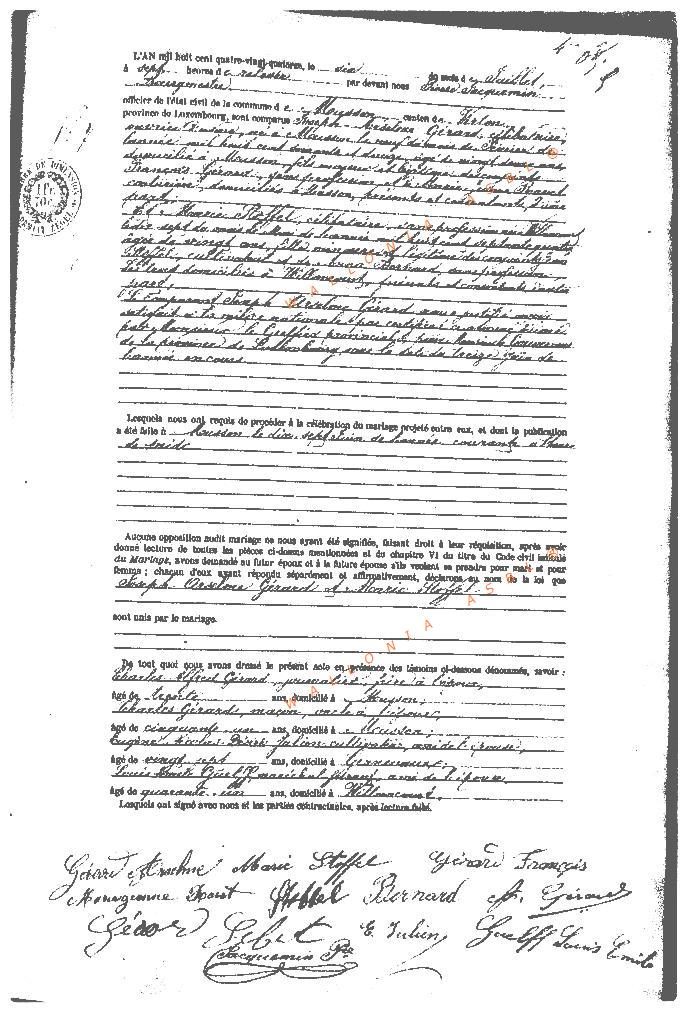 L'AN mil huit cent quatre-vingt-quatorze, le six du mois de Juillet,
à sept heures de relevée par devant nous Pierre Jacquemin
Bourgmestre
officier de l'état civil de la commune de Musson, canton de Virton,
province de Luxembourg, sont comparus Joseph Anselme Gérard, célibataire,
ouvrier d'usine, né à Musson, le neuf du mois de Février de
l'année mil huit cent soixante et douze, âgé de vingt deux ans,
domicilié à Musson, fils majeur et légitime des conjoints
François Gérard, sans profession et
domiciliés à Musson, présents et consentants, d'une
part;
Et Marie Stoffel, célibataire, sans profession, née à
le dix sept du mois de Mai de l'année mil huit cent septante quatre
âgée de vingt ans, fille mineure et légitime des conjoints
Stoffel, cultivateur et de Anna Bernard, sans profession,
domiciliés à Willancourt, présents et consentants d'autre
part.
Le comparant Joseph Anselme Gérard nous a justifié avoir
satisfait à la milice nationale par certificat
par Monsieur le Greffier provincial, pour Monsieur le Gouverneur
de la province de Luxembourg sous la date du treize Juin de
l'année en cours
Lesquels nous ont requis de procéder à la célébration du mariage projeté entre eux, et dont la publication
a été faite à Musson le dix sept Juin de l'année courante à l'heure
de midi
Aucune opposition audit mariage ne nous ayant été signifiée, faisant droit à leur réquisition, après avoir
donné lecture de toutes les pièces ci-dessus mentionnées et du chapitre VI du titre du Code civil intitulé
du Mariage, avons demandé au futur époux et à la future épouse s'ils veulent se prendre pour mari et pour
femme ; chacun d'eux ayant répondu séparément et affirmativement, déclarons au nom de la loi que
Joseph Anselme Gérard et Marie Stoffel
sont unis par le mariage.
De tout quoi nous avons dressé le présent acte en présence des témoins ci-dessous dénommés, savoir :
Charles Alfred Gérard, journalier, frère à l'époux,
âgé de trente ans, domicilié à Musson;
Charles Gérard, maçon, oncle à l'époux,
âgé de cinquante un ans, domicilié à Musson;
Eugène Nicolas Désiré Julien cultivateur, ami de l'épouse,
âgé de vingt sept ans, domicilié à Gennevaux;
Louis Emile Guelff, maréchal ferrant, ami de l'époux
âgé de quarante un ans, domicilié à Willancourt.
Lesquels ont signé avec nous et les parties contractantes, après lecture faite.
Gérard Anselme Marie Stoffel Gérard François
Stoffel Bernard A. Gérard
Gérard E. Julien Guelff Louis Emile
Jacquemin Pre
WALLONIA ASBL ©
WALLONIA ASBL ©